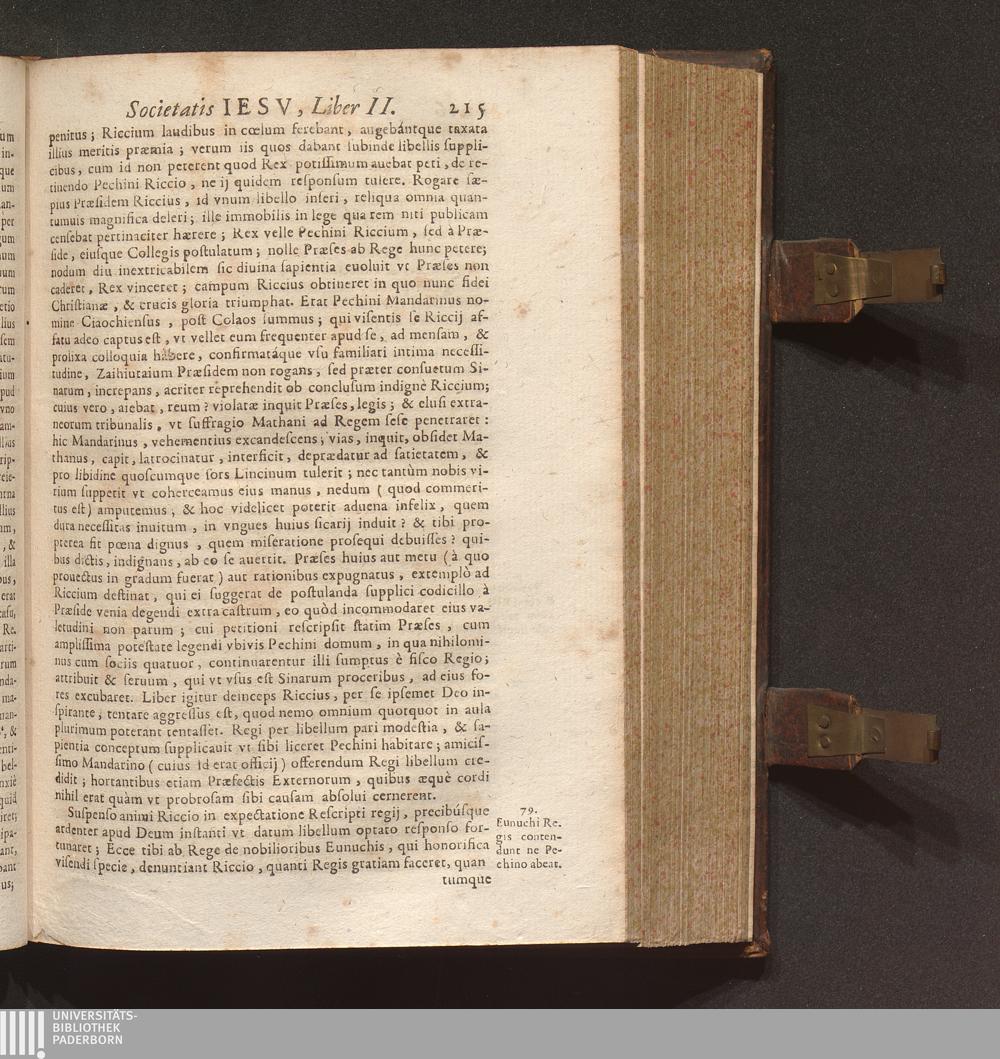 Societatis IESV, Liber II. 215
penitus; Riccium laudibus in cœlum ferebant, augebántque taxata
illius meritis præmia; verum iis quos dabant subinde libellis suppli-
cibus, cum id non peterent quod Rex potissimum auebat peti, de re-
tinendo Pechini Riccio, ne ij quidem responsum tulere. Rogare sæ-
pius Præsidem Riccius, id vnum libello inseri, reliqua omnia quan-
tumuis magnifica deleri; ille immobilis in lege qua rem niti publicam
censebat pertinaciter hærere; Rex velle Pechini Riccium, sed à Præ-
side, eiusque Collegis postulatum; nolle Præses ab Rege hunc petere;
nodum diu inextricabilem sic diuina sapientia euoluit vt Præses non
caderet, Rex vinceret; campum Riccius obtineret in quo nunc fidei
Christianæ, & crucis gloria triumphat. Erat Pechini Mandarinus no-
mine Ciaochiensus, post Colaos summus; qui visentis se Riccij af-
fatu adeo captus est, vt vellet eum frequenter apud se, ad mensam, &
prolixa colloquia habere, confirmatáque vsu familiari intima necessi-
tudine, Zaihiutaium Præsidem non rogans, sed præter consuetum Si-
narum, increpans, acriter reprehendit ob conclusum indignè Riccium;
cuius vero, aiebat, reum? violatæ inquit Præses, legis; & elusi extra-
neorum tribunalis, vt suffragio Mathani ad Regem sese penetraret:
hic Mandarinus, vehementius excandescens; vias, inquit, obsidet Ma-
thanus, capit, latrocinatur, interficit, deprædatur ad satietatem, &
pro libidine quoscumque sors Lincinum tulerit; nec tantùm nobis vi-
rium suppetit vt coherceamus eius manus, nedum (quod commeri-
tus est) amputemus; & hoc videlicet poterit aduena infelix, quem
dura necessitas inuitum, in vngues huius sicarij induit? & tibi pro-
pterea fit pœna dignus, quem miseratione prosequi debuisses? qui-
bus dictis, indignans, ab eo se auertit. Præses huius aut metu (à quo
prouectus in gradum fuerat) aut rationibus expugnatus, extemplò ad
Riccium destinat, qui ei suggerat de postulanda supplici codicillo à
Præside venia degendi extra castrum, eo quòd incommodaret eius va-
letudini non parum; cui petitioni rescripsit statim Præses, cum
amplissima potestate legendi vbivis Pechini domum, in qua nihilomi-
nus cum sociis quatuor, continuarentur illi sumptus è fisco Regio;
attribuit & seruum, qui vt vsus est Sinarum proceribus, ad eius fo-
res excubaret. Liber igitur deinceps Riccius, per se ipsemet Deo in-
spirante, tentare aggressus est, quod nemo omnium quotquot in aula
plurimum poterant tentasset. Regi per libellum pari modestia, & sa-
pientia conceptum supplicauit vt sibi liceret Pechini habitare; amicis-
simo Mandarino (cuius id erat officij) offerendum Regi libellum cre-
didit; hortantibus etiam Præfectis Externorum, quibus æquè cordi
nihil erat quàm vt probrosam sibi causam absolui cernerent.
Suspenso animi Riccio in expectatione Rescripti regij, precibúsque
ardenter apud Deum instanti vt datum libellum optato responso for-
tunaret; Ecce tibi ab Rege de nobilioribus Eunuchis, qui honorifica
visendi specie, denuntiant Riccio, quanti Regis gratiam faceret, quan
tumque
79.
Eunuchi Re-
gis conten-
dunt ne Pe-
chino abeat.
UNIVERSITÄTS-
BIBLIOTHEK
PADERBORN